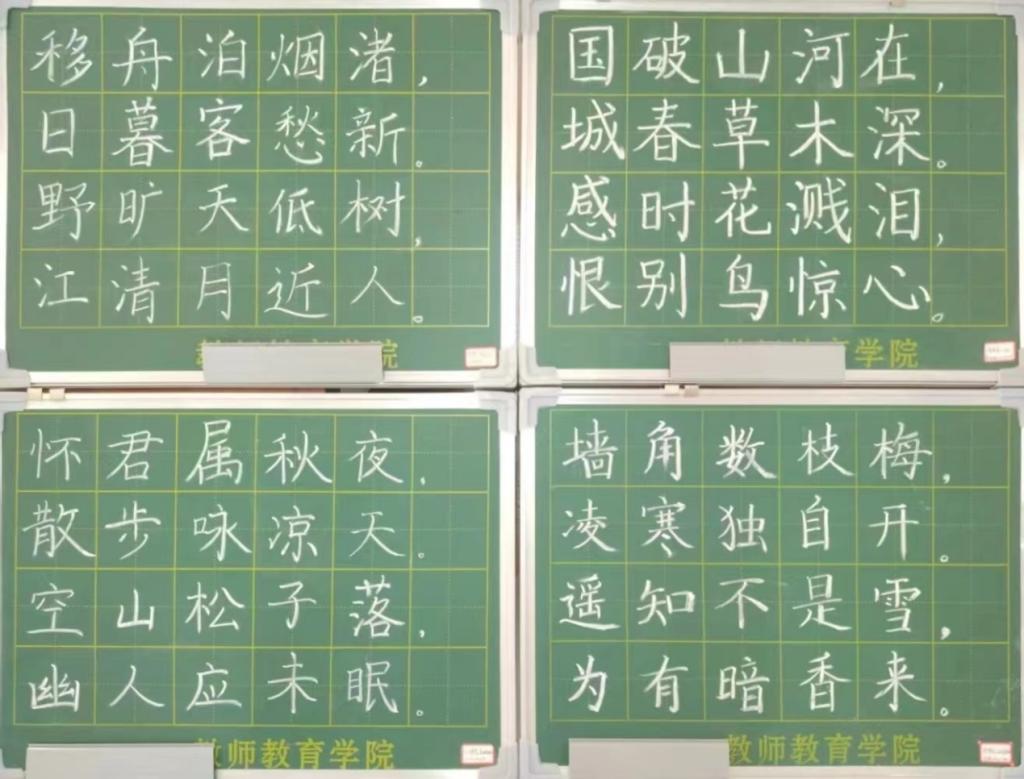 移舟泊烟渚，
日暮客愁新。
野旷天低树，
江清月近人。
国破山河在，
城春草木深。
感时花溅泪，
恨别鸟惊心。
学院
怀君属秋夜，
散步咏凉天。
空山松子落，
幽人应未眠。
教师教育学院
墙角数枝梅，
凌寒独自开。
遥知不是雪，
为有暗香来。
教师教育学院